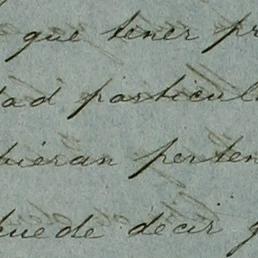 que tener pr
tad particul
bieran perten
puede decir q